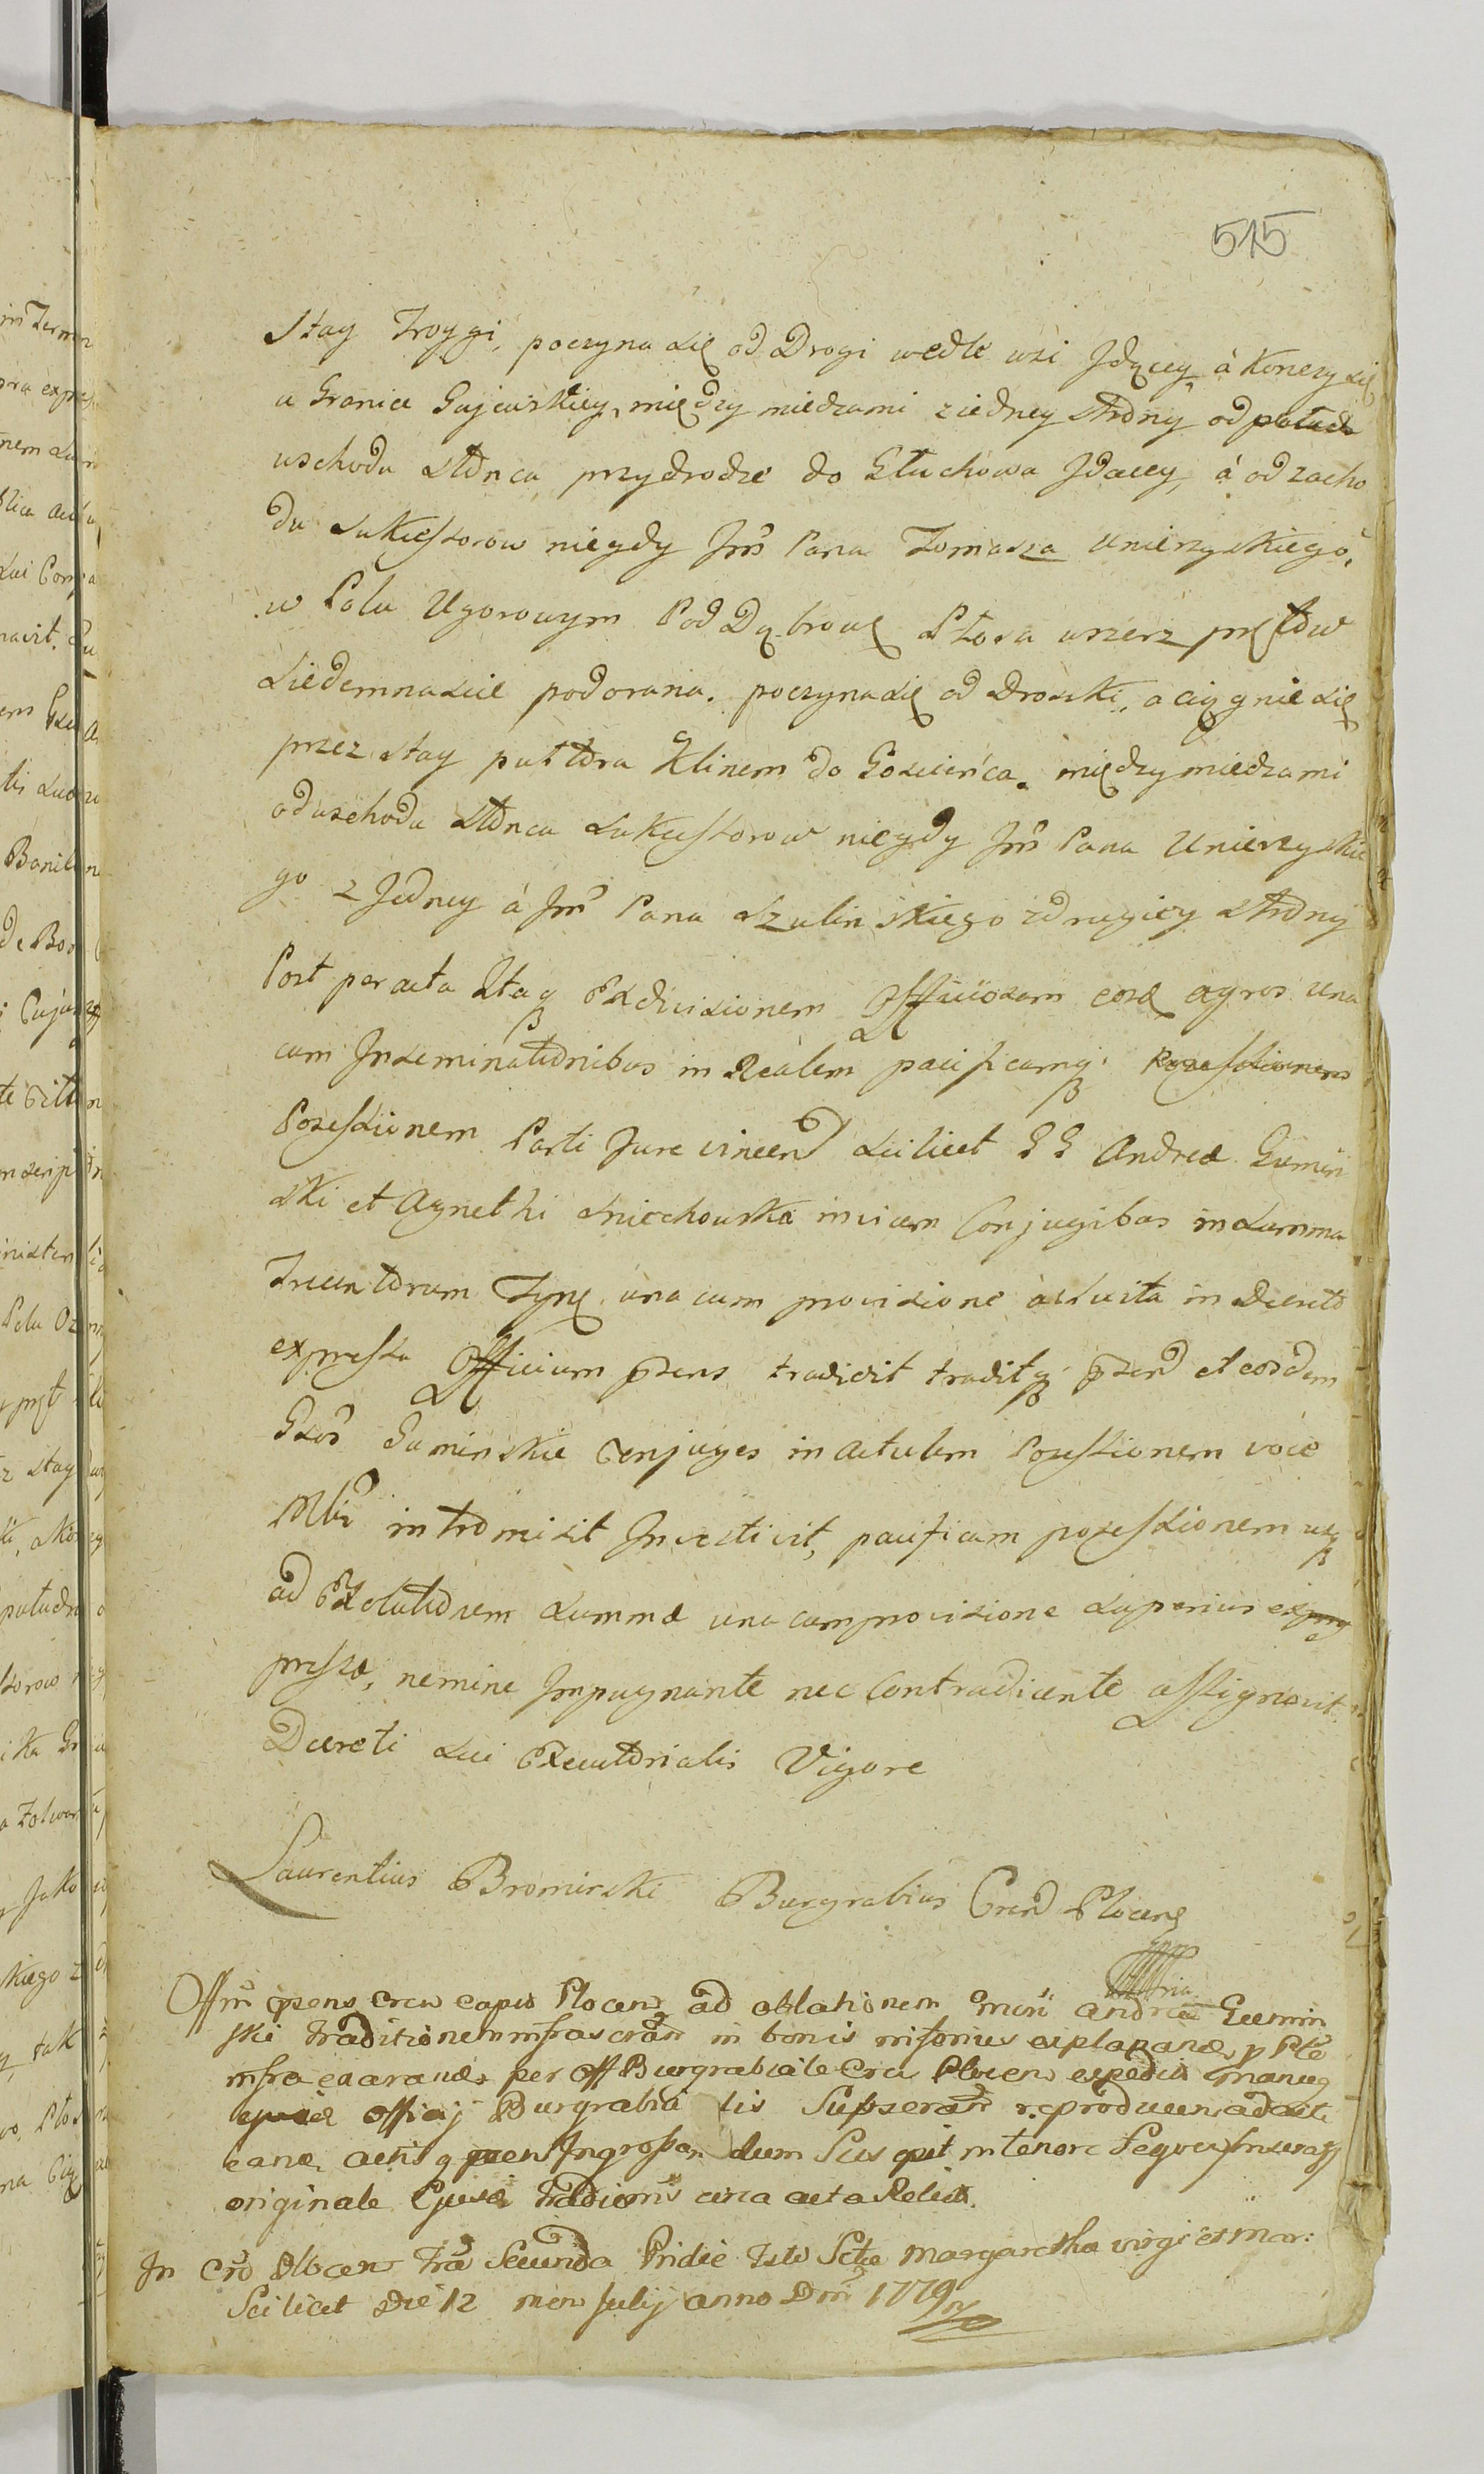 515
Stay Troygi, poczyna się od Drogi wedle wsi Jdącey, á Konczy się
u Granice Gajewskiey, między miedzami ziedney strony od połud
wschodu słonca przydrodze do Głuchowa Jdącey, á od zacho
du sukcessorow niegdy Jmś Pana Tomasza Unierzyskiego,
w Polu Ugorowym Pod Dąbrową Płosa wszerz prętow
siedemnascie podorana. poczyna się od Drożki, a ciągnie się
przez stay pułtora Klinem do Goscińca. między miedzami
od wschodu słonca sukcessorow niegdy Jmś Pana Unierzyskie
go z Jedney á Jmś Pana Szulinskiego zdrugiey strony
Post peracta Itaq Exdivisionem Officiosam eosd agros una
cum Inseminationibus in Realem pacificamq Possessionem
Possessionem Parti Jure vincen scilicet GG Andreæ Gumin
ski et Agnethi Sniechowska invicem Conjugibus in summa
Trecentorum Tynf una cum provisione adsuita in Decreto
expressa Officium pñens tradidit traditq pñen et eosdem
Gsos Guminskie Conjuges in actulem Possessionem voce
Mli intromisit Investivit, pacificam possessionem usq
ad Exolutionem summæ una cum provisione superius exprę
pressæ, nemine Impugnante nec Contradicente assignavit.
Decreti sui Executorialis Vigore
Laurentius Bromirski Burgrabius Cren Plocens
Offm pñens Cren capit Plocens ad oblationem Andreæ Gumin
ski traditionem infrascran in bonis inferius
infra exarand per Off Burgrabiale Cren Plocens expedit manuq
ejusd Officij Burgrabia lis Subscran reproducen ad acti
cand actisq pñen Ingrossan dum Suscepit in tenore Sequen
originale Ejusd Tradionis circa acta Relict.
In Cro Plocen fra Secunda Pridie festi Sctæ Margarethæ virgi et mar:
Scilicet Die 12 mens Julij anno Dni 1779